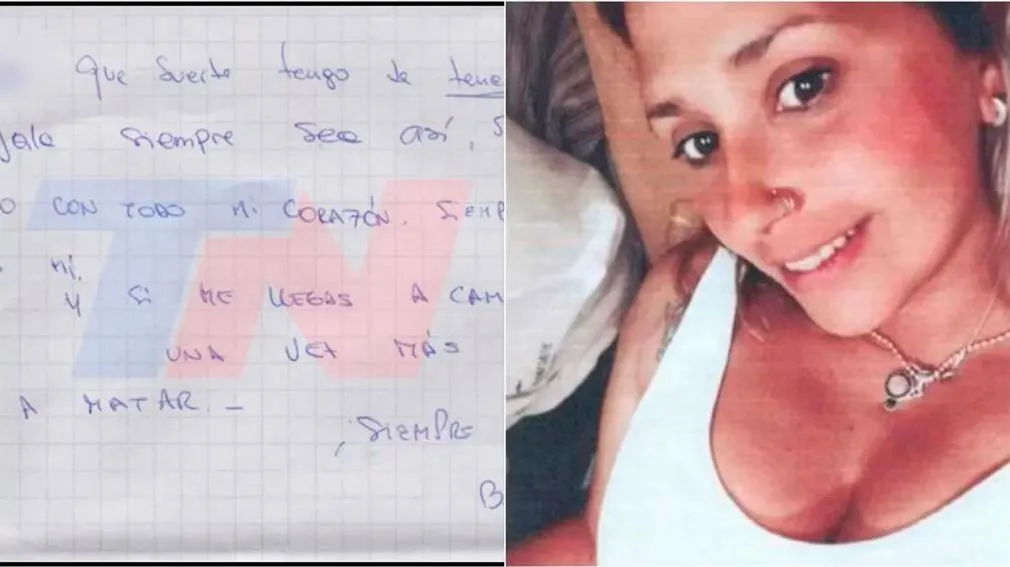 Que suerte tengo de tene
jala siempre sea así, S
o CON TODO MI CORAZÓN. SIEMP
MÍ.
Y SI ME LLEGAS A CAM
UNA VEZ MÁS
A MATAR. –
, SIEMPRE
B
TN